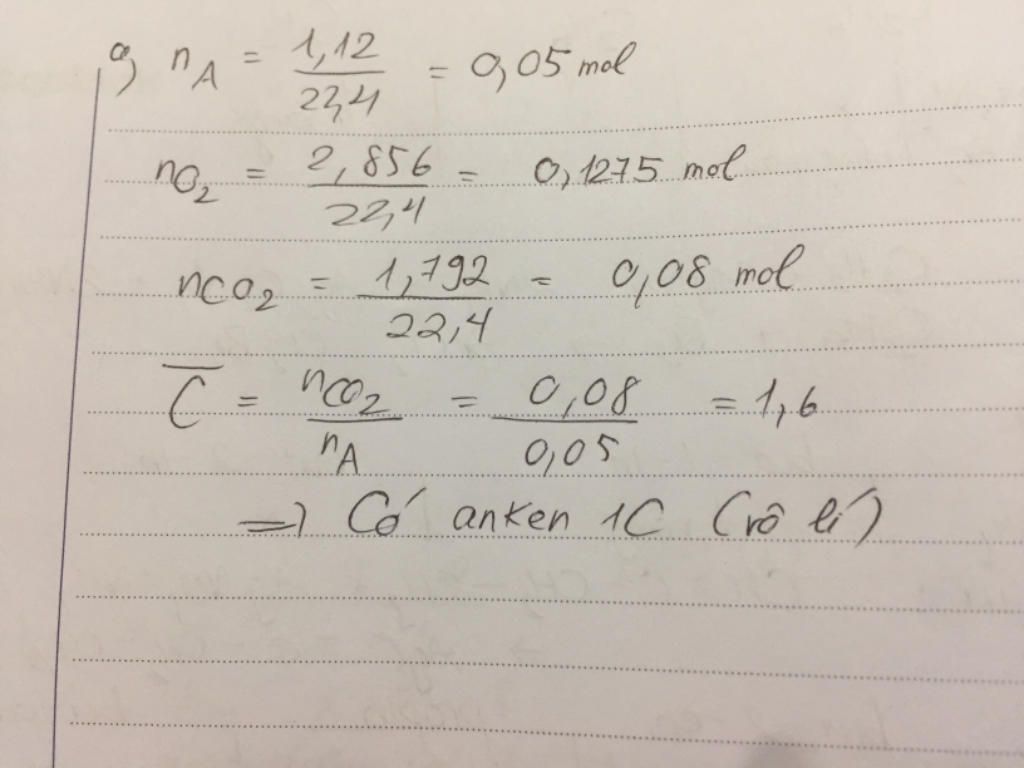 a) nA = 1,12 / 22,4 = 0,05 mol
nO2 = 2,856 / 22,4 = 0,1275 mol
nCO2 = 1,792 / 22,4 = 0,08 mol
C̅ = nCO2 / nA = 0,08 / 0,05 = 1,6
=> Có anken 1C (vô lí)